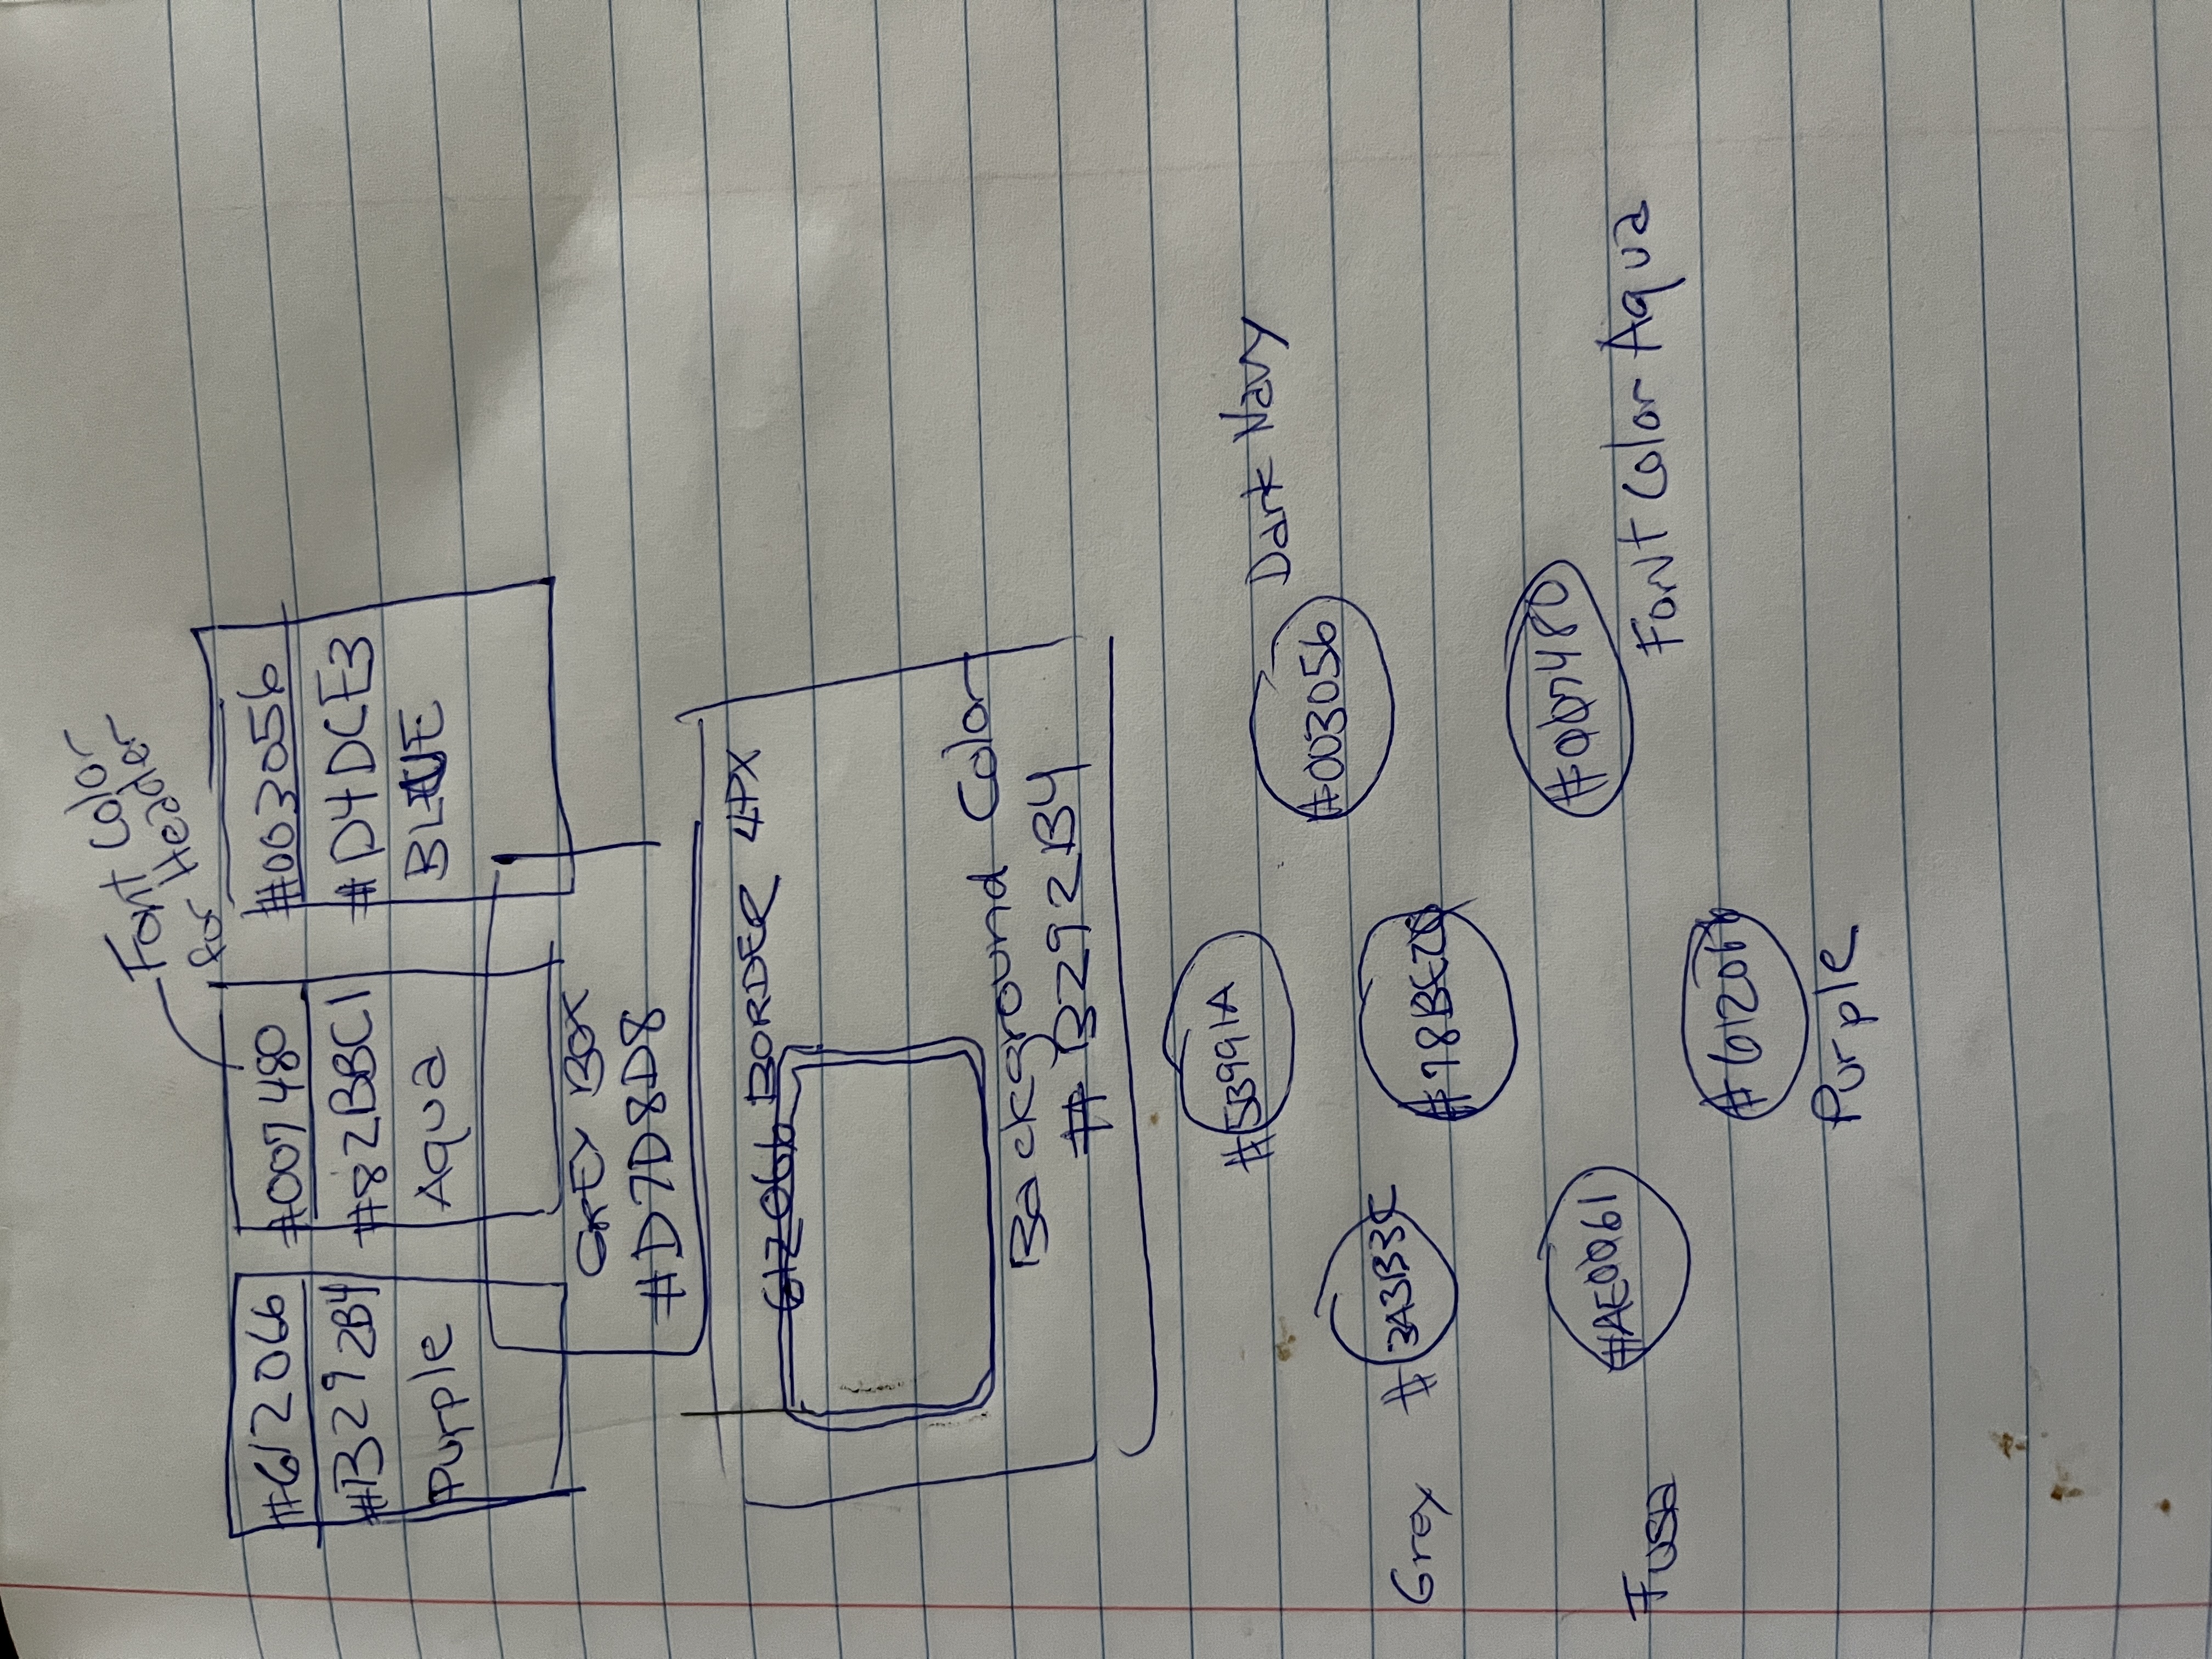 Font Color
for Header
#612066
#B292B4
Purple
#007480
#82BBC1
Aqua
#003056
#D4DCE3
BLUE
GREY BOX
#D7D8D8
612066 BORDER 4PX
Background Color
#B292B4
#5B991A
#003056 Dark Navy
Grey #3A3B3C
#78BE20
#AE0061
Fusa
#007480
Font Color Aqua
#612066
Purple